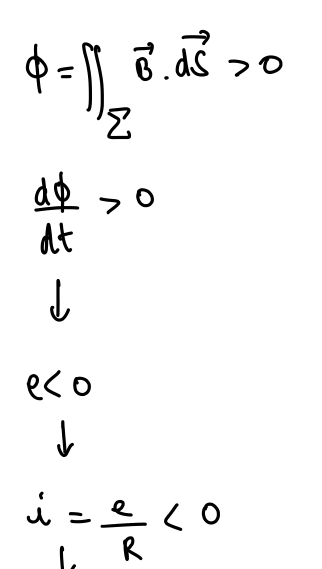 ϕ = ∬_Σ B⃗ . dS⃗ > 0
dϕ/dt > 0
↓
e < 0
↓
i = e/R < 0
↓